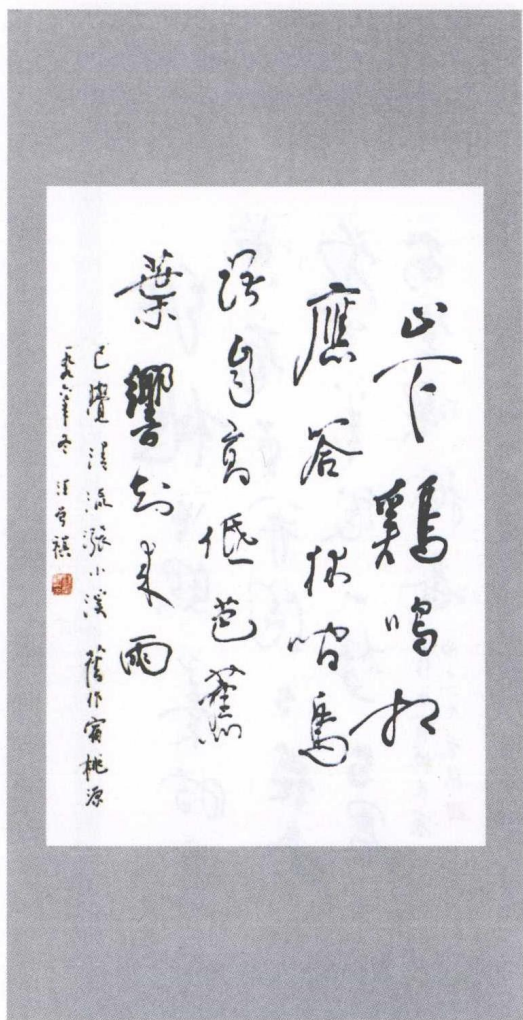 山下鷄鳴相
應答林間鳥
語自高低芭蕉
葉響知来雨
已覺清流漲小溪 舊作宿桃源
六年冬 汪曾祺